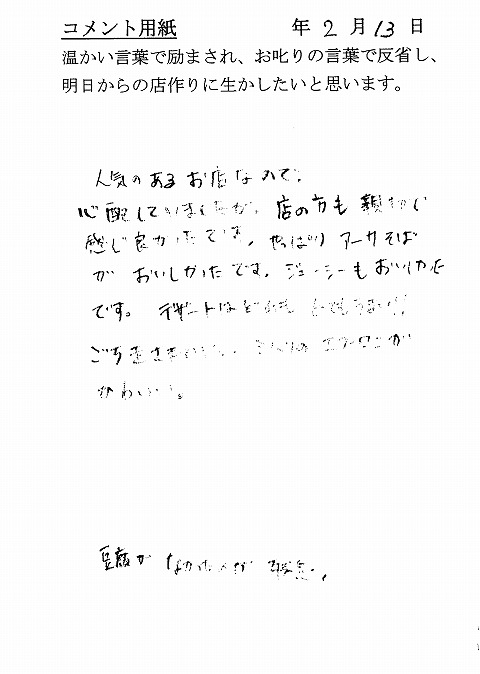 コメント用紙 年 2 月 13 日
温かい言葉で励まされ、お叱りの言葉で反省し、
明日からの店作りに生かしたいと思います。
人気のあるお店なので、
心配していましたが、店の方も親切で
感じ良かったです。やっぱりアーサそば
がおいしかったです。ジューシーもおいしかった
です。デザートは
ごちそうさまでした。 エプロンが
かわいい。
豆腐がなかったのが残念。